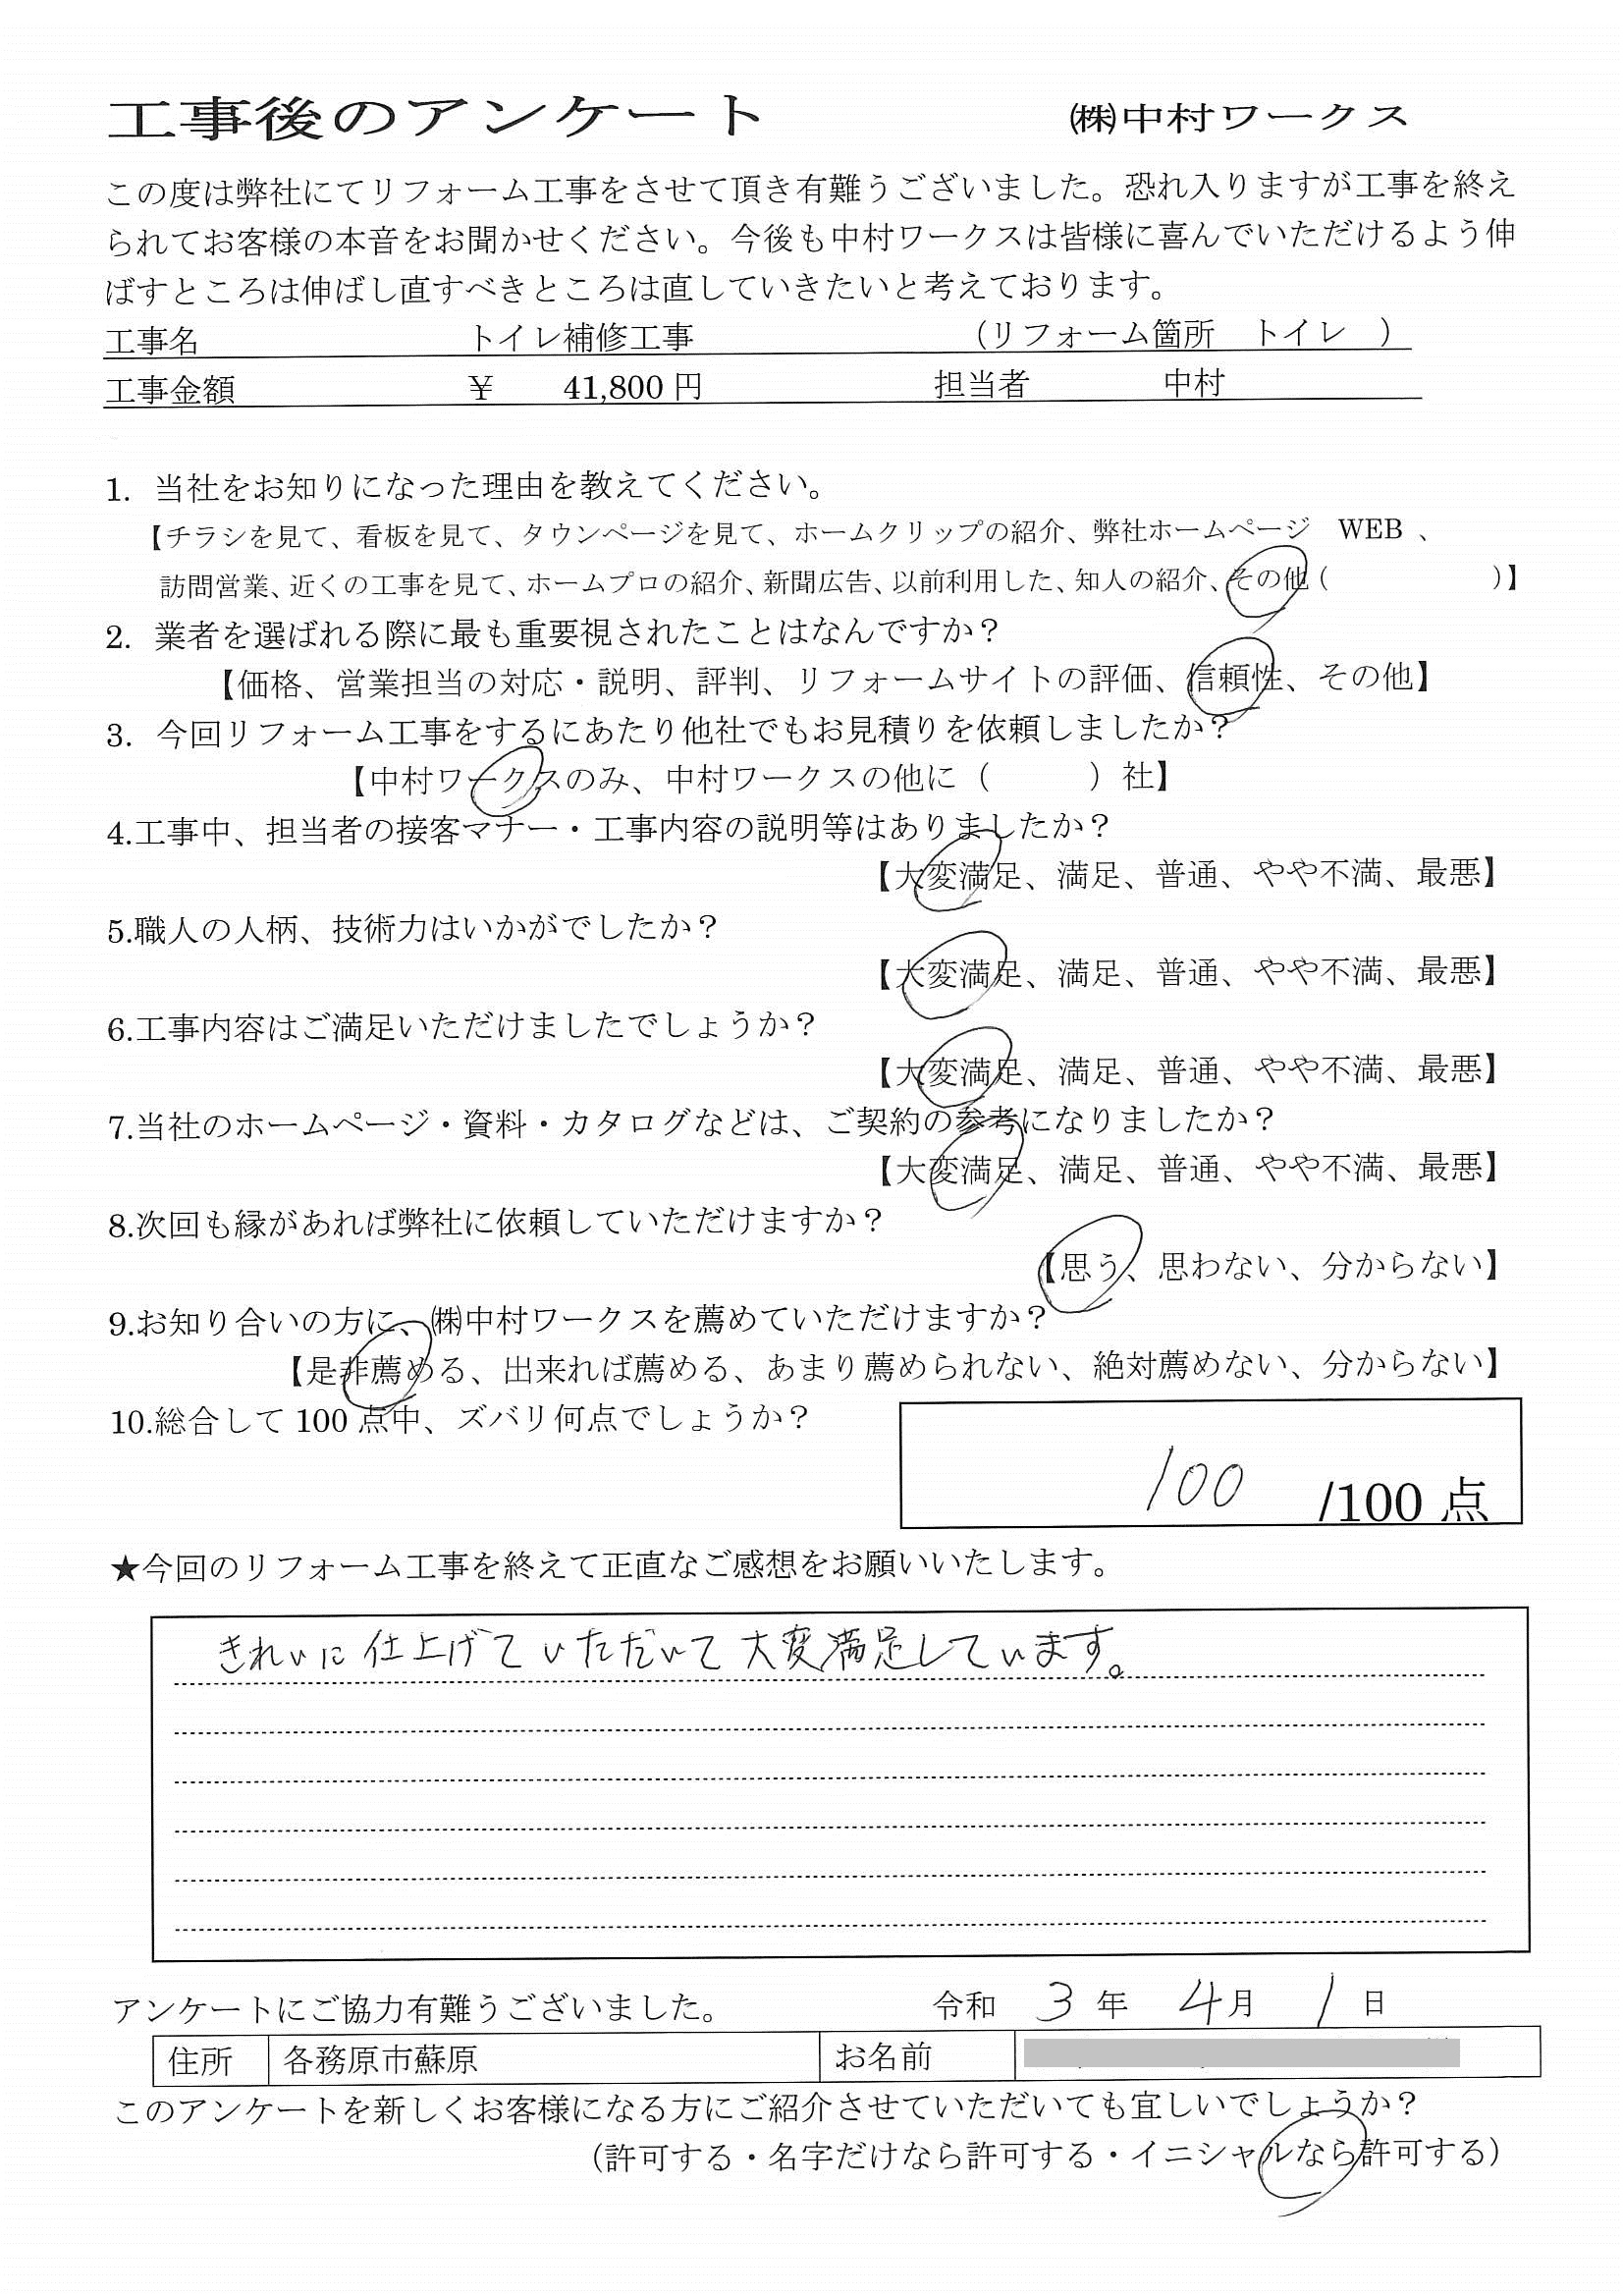 工事後のアンケート　㈱中村ワークス
この度は弊社にてリフォーム工事をさせて頂き有難うございました。恐れ入りますが工事を終え
られてお客様の本音をお聞かせください。今後も中村ワークスは皆様に喜んでいただけるよう伸
ばすところは伸ばし直すべきところは直していきたいと考えております。
工事名　トイレ補修工事　（リフォーム箇所　トイレ　）
工事金額　￥　41,800 円　担当者　中村
1. 当社をお知りになった理由を教えてください。
【チラシを見て、看板を見て、タウンページを見て、ホームクリップの紹介、弊社ホームページ　WEB 、
訪問営業、近くの工事を見て、ホームプロの紹介、新聞広告、以前利用した、知人の紹介、その他（　　　　　）】
2. 業者を選ばれる際に最も重要視されたことはなんですか？
【価格、営業担当の対応・説明、評判、リフォームサイトの評価、信頼性、その他】
3. 今回リフォーム工事をするにあたり他社でもお見積りを依頼しましたか？
【中村ワークスのみ、中村ワークスの他に（　　　）社】
4.工事中、担当者の接客マナー・工事内容の説明等はありましたか？
【大変満足、満足、普通、やや不満、最悪】
5.職人の人柄、技術力はいかがでしたか？
【大変満足、満足、普通、やや不満、最悪】
6.工事内容はご満足いただけましたでしょうか？
【大変満足、満足、普通、やや不満、最悪】
7.当社のホームページ・資料・カタログなどは、ご契約の参考になりましたか？
【大変満足、満足、普通、やや不満、最悪】
8.次回も縁があれば弊社に依頼していただけますか？
【思う、思わない、分からない】
9.お知り合いの方に、㈱中村ワークスを薦めていただけますか？
【是非薦める、出来れば薦める、あまり薦められない、絶対薦めない、分からない】
10.総合して 100 点中、ズバリ何点でしょうか？
100 /100 点
★今回のリフォーム工事を終えて正直なご感想をお願いいたします。
きれいに仕上げていただいて大変満足しています。
アンケートにご協力有難うございました。　令和 3 年 4 月 1 日
住所　各務原市蘇原　お名前
このアンケートを新しくお客様になる方にご紹介させていただいても宜しいでしょうか？
（許可する・名字だけなら許可する・イニシャルなら許可する）